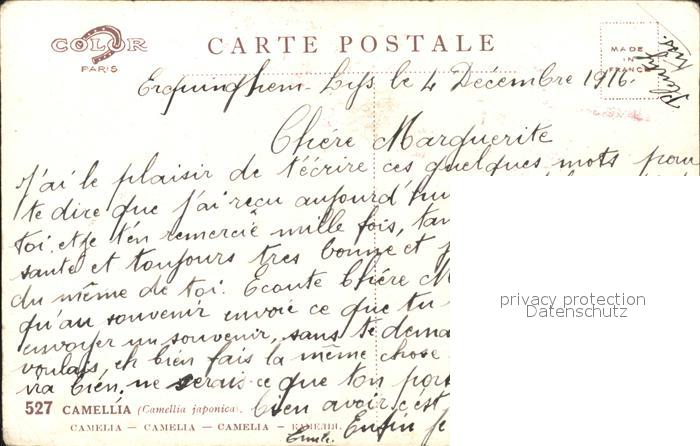 COLOR
PARIS
CARTE POSTALE
MADE
IN
FRANCE
Erquinghem-Lys le 4 Décembre 1916.
Chére Marguerite
J'ai le plaisir de t'écrire ces quelques mots pour
te dire que j'ai reçu aujourd'hui
toi. et je t'en remercie mille fois,
santé et toujours tres bonne et
du même de toi. Ecoute Chére M
qu'au souvenir envoie ce que tu
envoyer un souvenir, sans te dema
voulais, eh bien fais la même chose
ira bien. ne serais-ce que ton
bien avoir, c'est
Enfin je
privacy protection
Datenschutz
527 CAMELLIA (Camellia japonica).
CAMELIA — CAMELIA — CAMELIA — КАМЕЛИЯ.